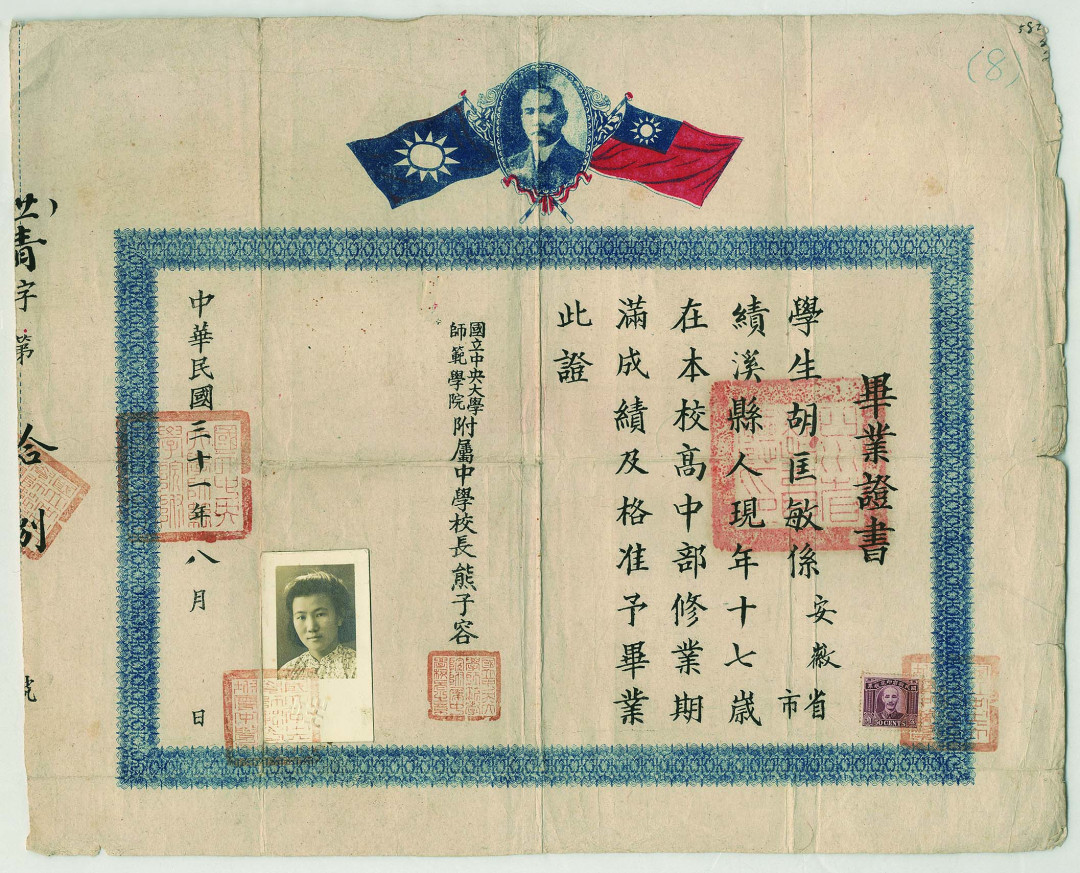 畢業證書
學生胡匡敏係安徽省市
績溪縣人現年十七歲
在本校高中部修業期
滿成績及格准予畢業
此證
國立中央大學
師範學院
附屬中學校長熊子容
中華民國三十一年八月 日
青字第 拾 號
50 CENTS
(8)